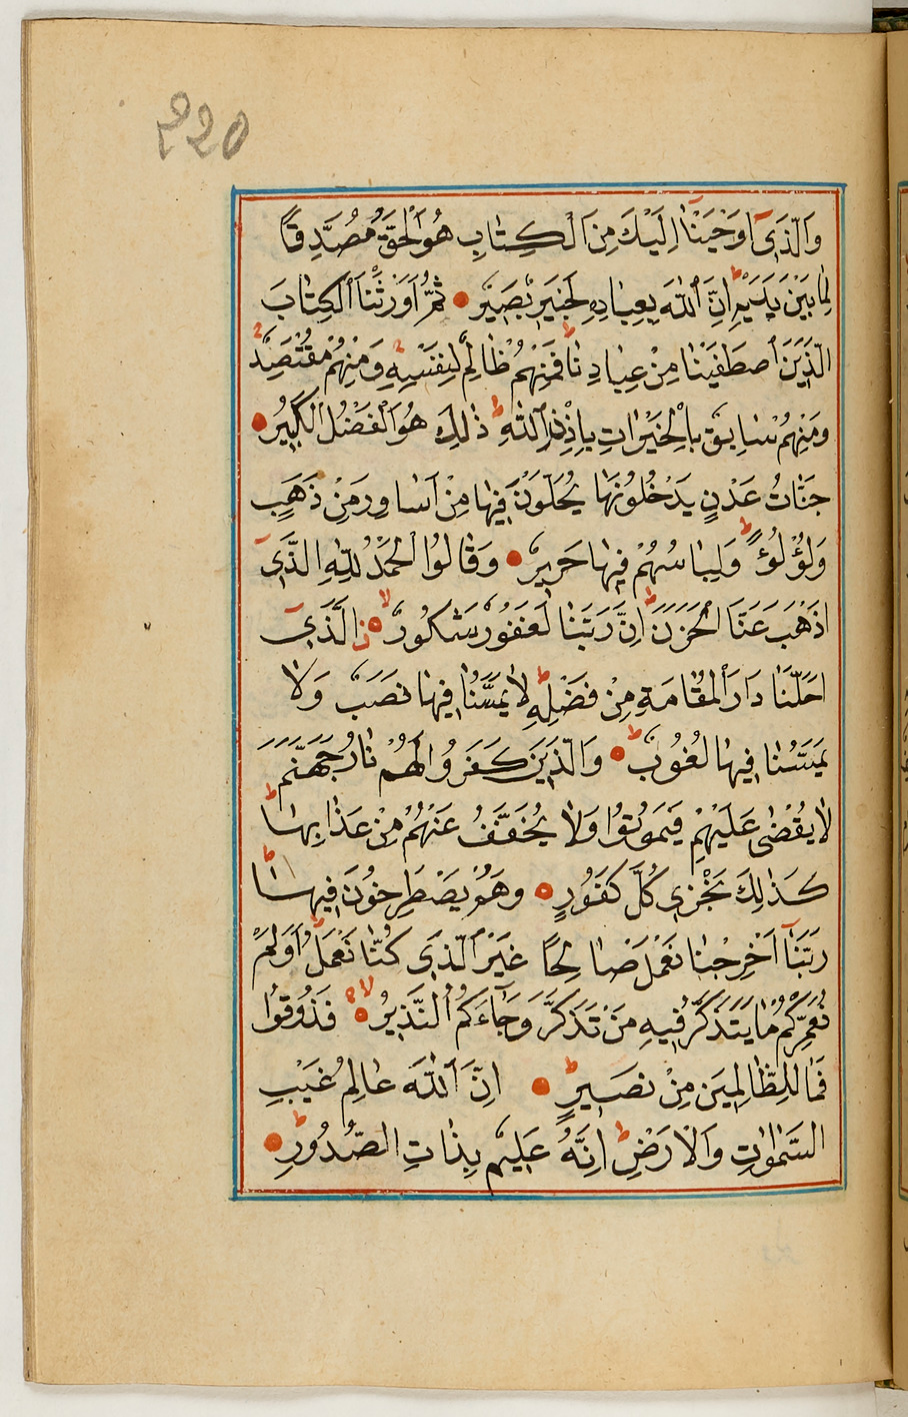 220
وَالَّذَٓى اَوْحَيْنَٓا اِلَيْكَ مِنَ الْكِتَابِ هُوَ الْحَقُّ مُصَدِّقًا
لِمَا بَيْنَ يَدَيْهِ ط اِنَّ اللّٰهَ بِعِبَادِهِ لَخَبِيرٌ بَصِيرٌ ثُمَّ اَوْرَثْنَا الْكِتَابَ
الَّذِينَ اصْطَفَيْنَا مِنْ عِبَادِنَا ط فَمِنْهُمْ ظَالِمٌ لِنَفْسِهِ وَمِنْهُمْ مُقْتَصِدٌ
وَمِنْهُمْ سَابِقٌ بِالْخَيْرَاتِ بِاِذْنِ اللّٰهِ ط ذٰلِكَ هُوَ الْفَضْلُ الْكَبِيرُ
جَنَّاتُ عَدْنٍ يَدْخُلُونَهَا يُحَلَّوْنَ فِيهَا مِنْ اَسَاوِرَ مِنْ ذَهَبٍ
وَلُؤْلُؤًا ط وَلِبَاسُهُمْ فِيهَا حَرِيرٌ وَقَالُوا الْحَمْدُ لِلّٰهِ الَّذِٓى
اَذْهَبَ عَنَّا الْحَزَنَ ط اِنَّ رَبَّنَا لَغَفُورٌ شَكُورٌ لا الَّذِٓى
اَحَلَّنَا دَارَ الْمُقَامَةِ مِنْ فَضْلِهِ ط لَا يَمَسُّنَا فِيهَا نَصَبٌ وَلَا
يَمَسُّنَا فِيهَا لُغُوبٌ ط وَالَّذِينَ كَفَرُوا لَهُمْ نَارُ جَهَنَّمَ
لَا يُقْضٰى عَلَيْهِمْ فَيَمُوتُوا وَلَا يُخَفَّفُ عَنْهُمْ مِنْ عَذَابِهَا ط
كَذٰلِكَ نَجْزِى كُلَّ كَفُورٍ وَهُمْ يَصْطَرِخُونَ فِيهَا ط
رَبَّنَٓا اَخْرِجْنَا نَعْمَلْ صَالِحًا غَيْرَ الَّذِى كُنَّا نَعْمَلُ ط اَوَلَمْ
نُعَمِّرْكُمْ مَا يَتَذَكَّرُ فِيهِ مَنْ تَذَكَّرَ وَجَٓاءَكُمُ النَّذِيرُ لا فَذُوقُوا
فَمَا لِلظَّالِمِينَ مِنْ نَصِيرٍ ط اِنَّ اللّٰهَ عَالِمُ غَيْبِ
السَّمٰوَاتِ وَالْاَرْضِ ط اِنَّهُ عَلِيمٌ بِذَاتِ الصُّدُورِ ط